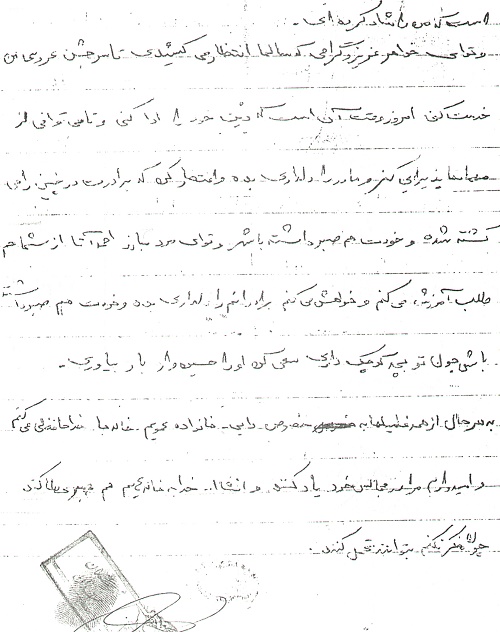 است که من را شاد کرده ای.
و توای خواهر عزیز و گرامی که سالها انتظار می کشیدی تا سر جشن عروسی من
خدمت کنی امروز وقت آن است که دین خود را ادا کنی و تا می توانی از
مهمانها پذیرایی کن و مادر را دلداری بده و افتخار کن که برادرت در چنین راهی
کشته شده و خودت هم صبر داشته باش و توای مرد مبارز احمد آقا از شما هم
طلب آمرزش می کنم و خواهش می کنم برادرانم را دلداری بده و خودت هم صبر داشته
باش چون تو بچه کوچک داری سعی کن او را حسین وار بار بیاوری.
به هر حال از همه فامیلها به خصوص دایی خانواده عمویم خاله ها خداحافظی می کنم
و امیدوارم مرا در مجالس خود یاد کنند و انشاا.. خدا به خانواده ام هم صبری عطا کند
چون فکر نکنم بتوانند تحمل کنند.